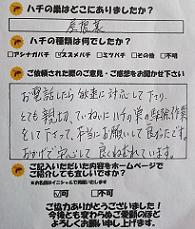 ハチの巣はどこにありましたか?
屋根裏
ハチの種類は何でしたか?
アシナガバチ スズメバチ ミツバチ その他 不明
ご依頼された際のご意見・ご感想をお聞かせ下さい
お電話したら敏速に対応して下さり、
とても親切、ていねいにハチの巣の駆除作業
をして下さって、本当にお願いして良かったです。
おかげで安心して良くねむれています。
ご記入いただいた内容をホームページで
ご紹介しても宜しいですか?
可 不可
ご協力ありがとうございました!
今後とも変わらぬご愛顧のほど
よろしくお願い申し上げます。